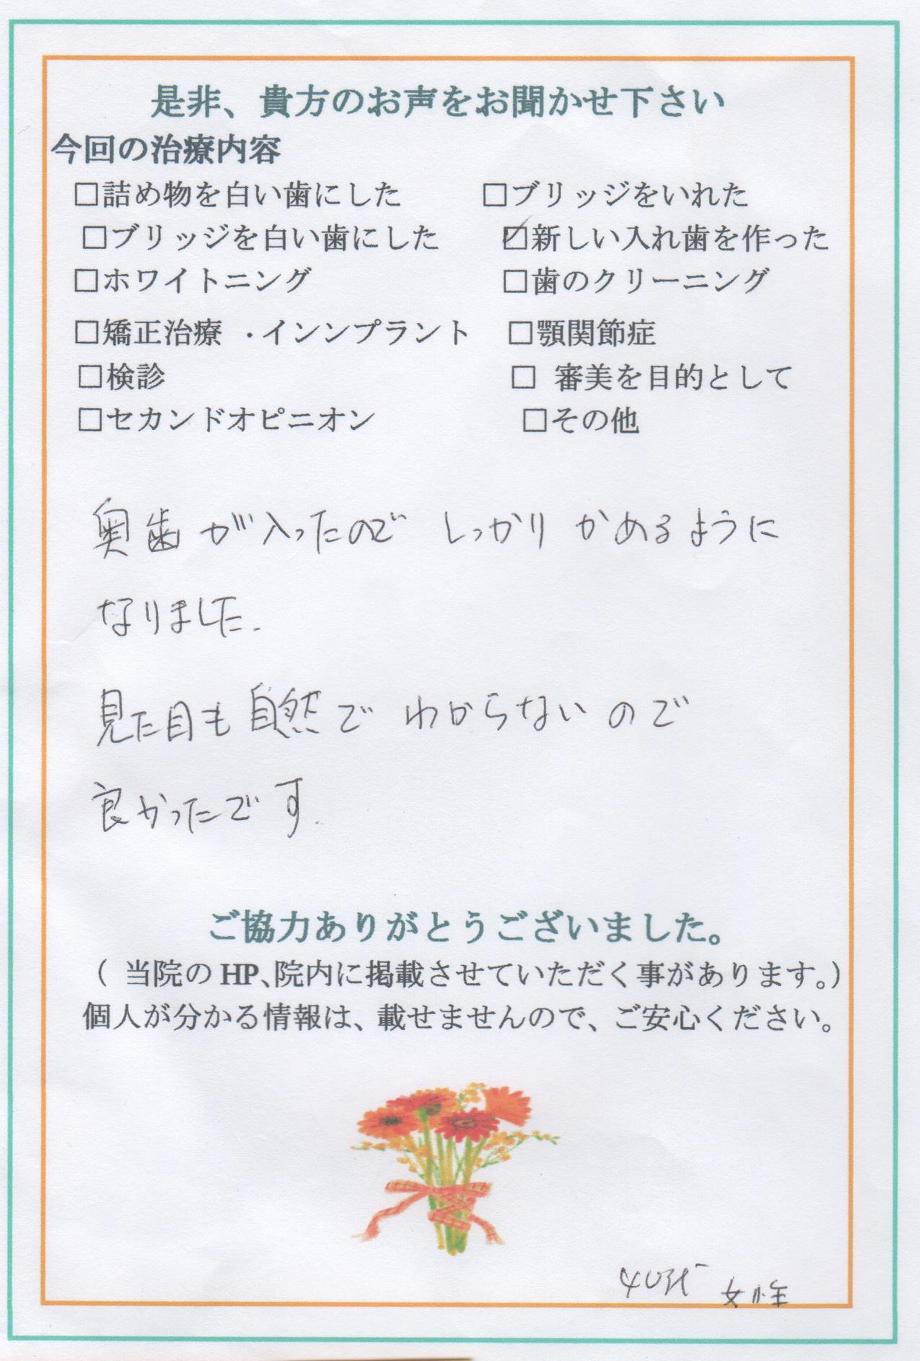 是非、貴方のお声をお聞かせ下さい
今回の治療内容
□詰め物を白い歯にした □ブリッジをいれた
□ブリッジを白い歯にした ☑新しい入れ歯を作った
□ホワイトニング □歯のクリーニング
□矯正治療 ・インンプラント □顎関節症
□検診 □ 審美を目的として
□セカンドオピニオン □その他
奥歯が入ったので しっかり かめるように
なりました.
見た目も自然で わからないので
良かったです.
ご協力ありがとうございました。
（ 当院の HP、院内に掲載させていただく事があります。）
個人が分かる情報は、載せませんので、ご安心ください。
40代 女性